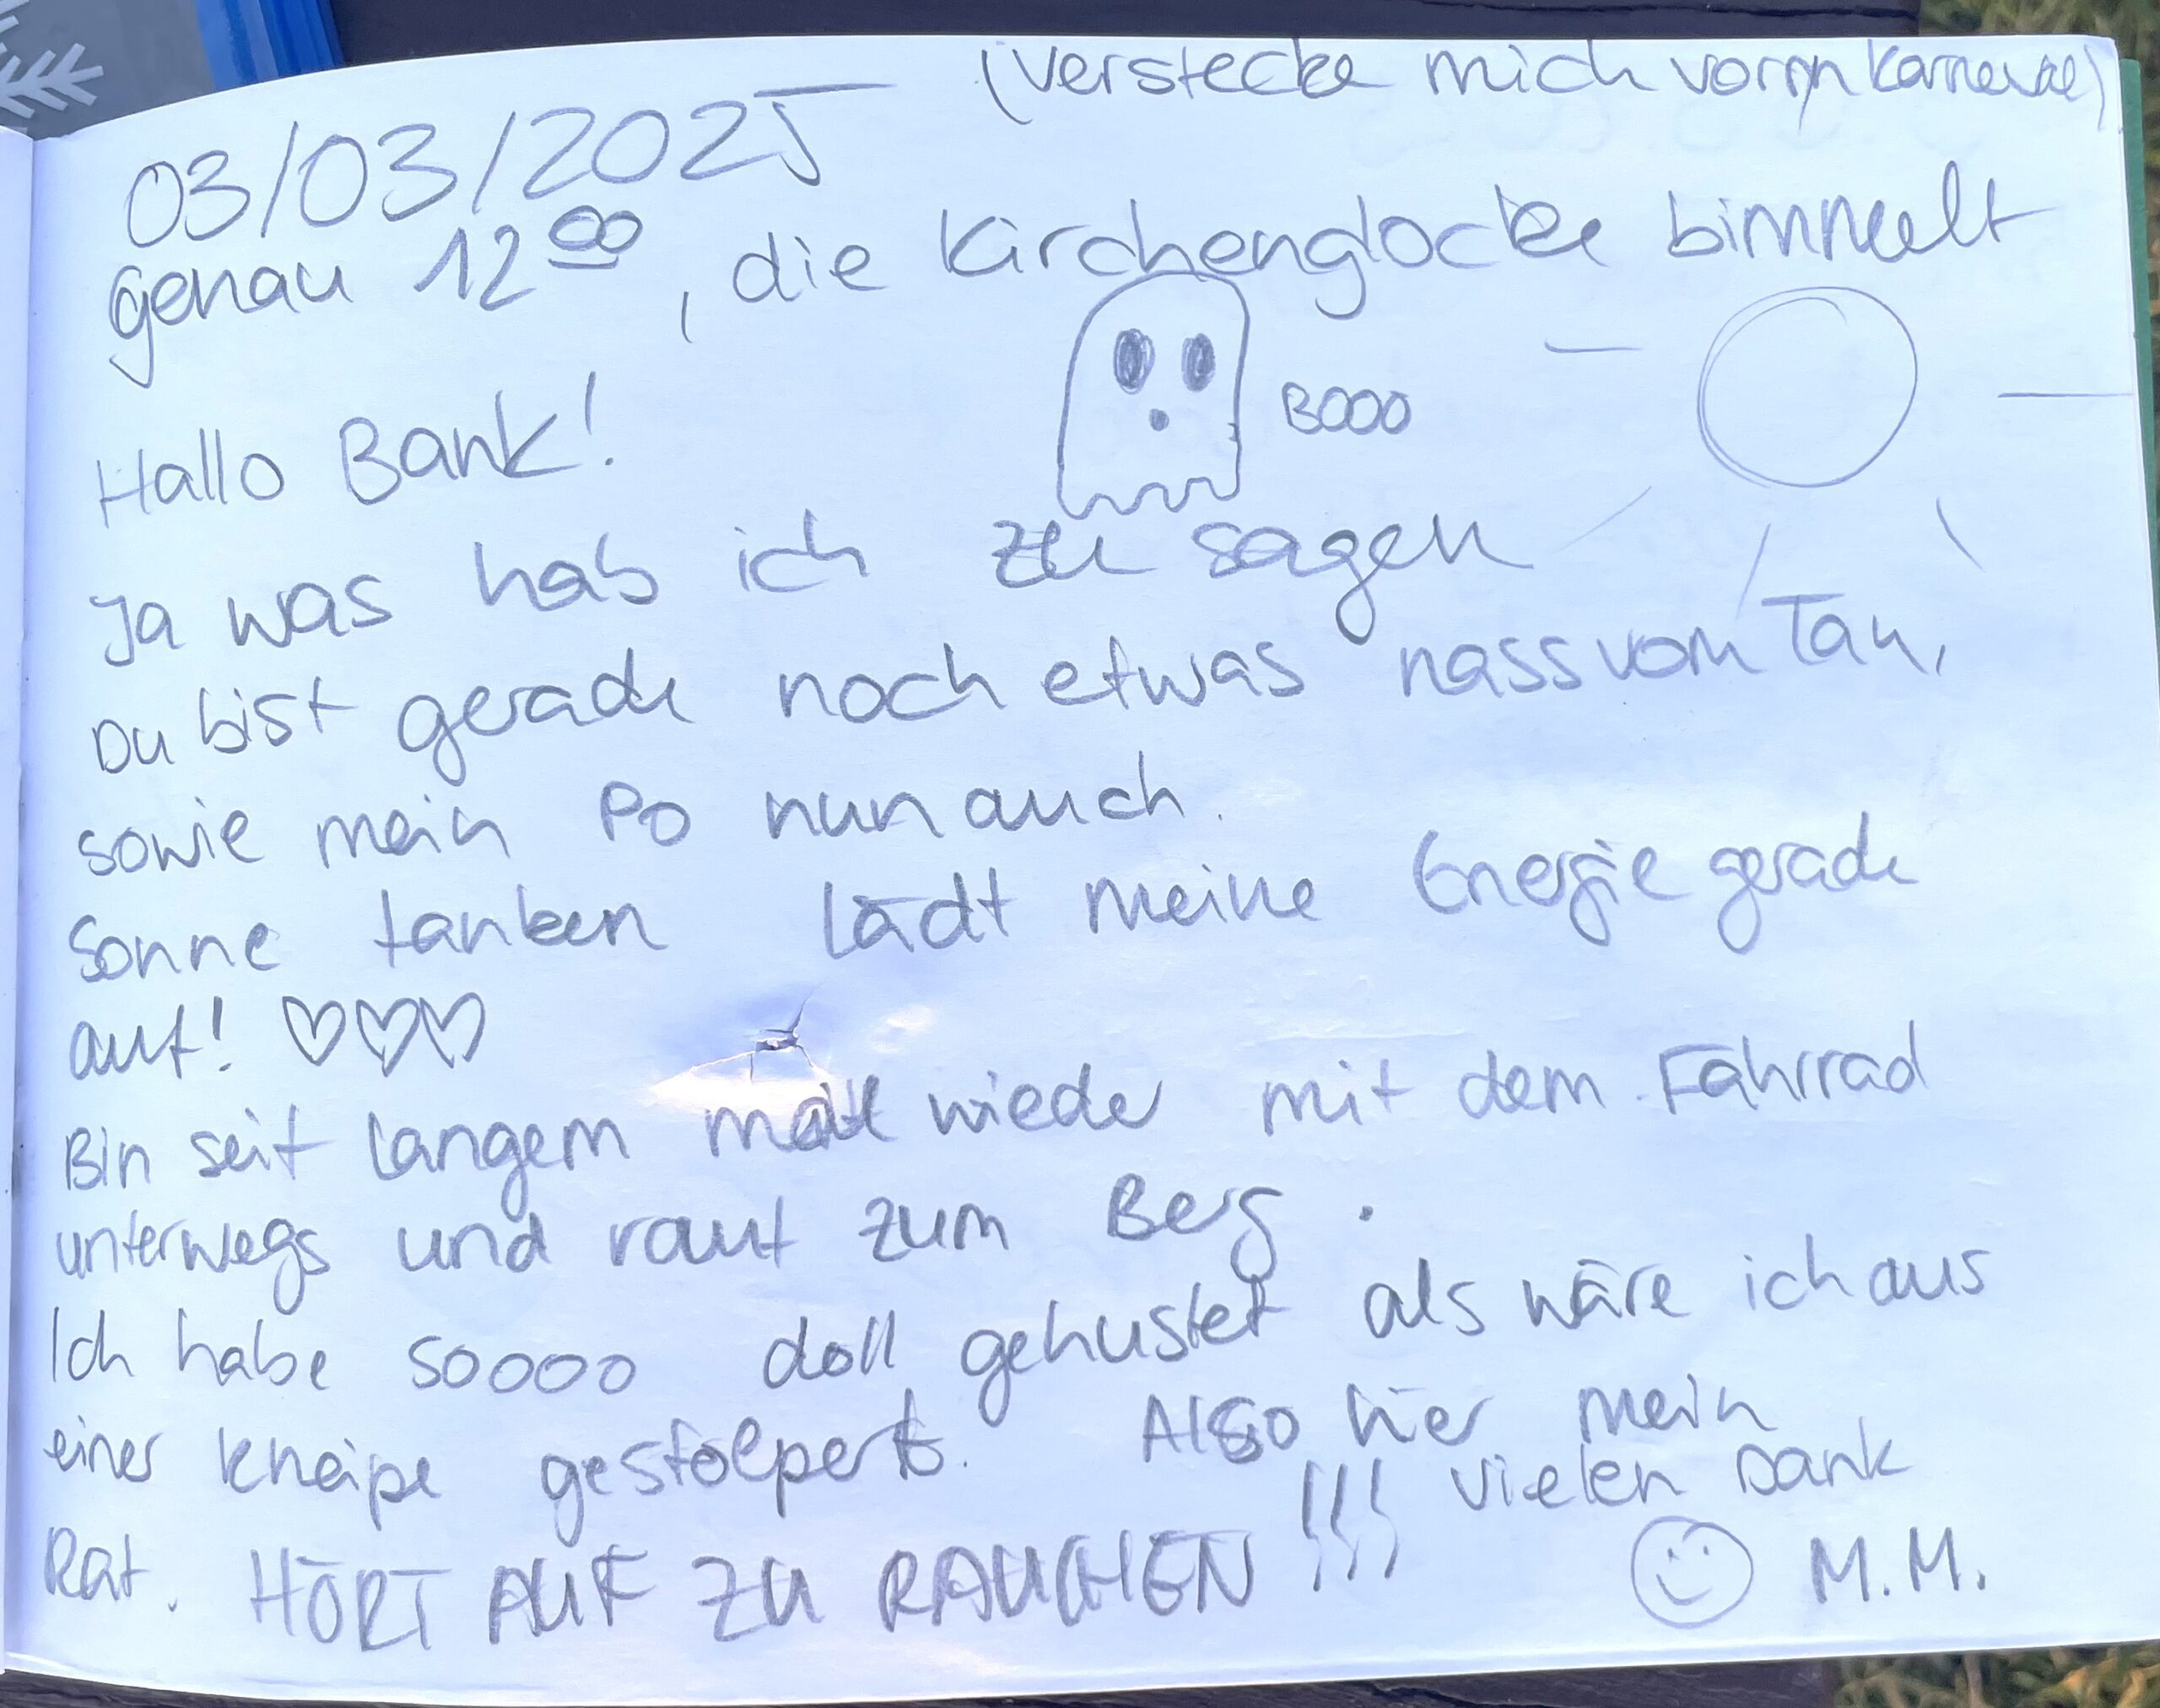 (verstecke mich vorm Karneval)
03/03/2025
genau 12 00, die Kirchenglocke bimmelt
BOOO
Hallo Bank!
Ja was hab ich zu sagen
Du bist gerade noch etwas nass vom Tau,
sowie mein Po nun auch.
Sonne tanken lädt meine Energie gerade
auf! ♡♡♡
Bin seit langem mal wieder mit dem Fahrrad
unterwegs und rauf zum Berg.
Ich habe soooo doll gehustet als wäre ich aus
einer Kneipe gestolpert. Also hier mein
Rat. HÖRT AUF ZU RAUCHEN!!! Vielen Dank
M.M.